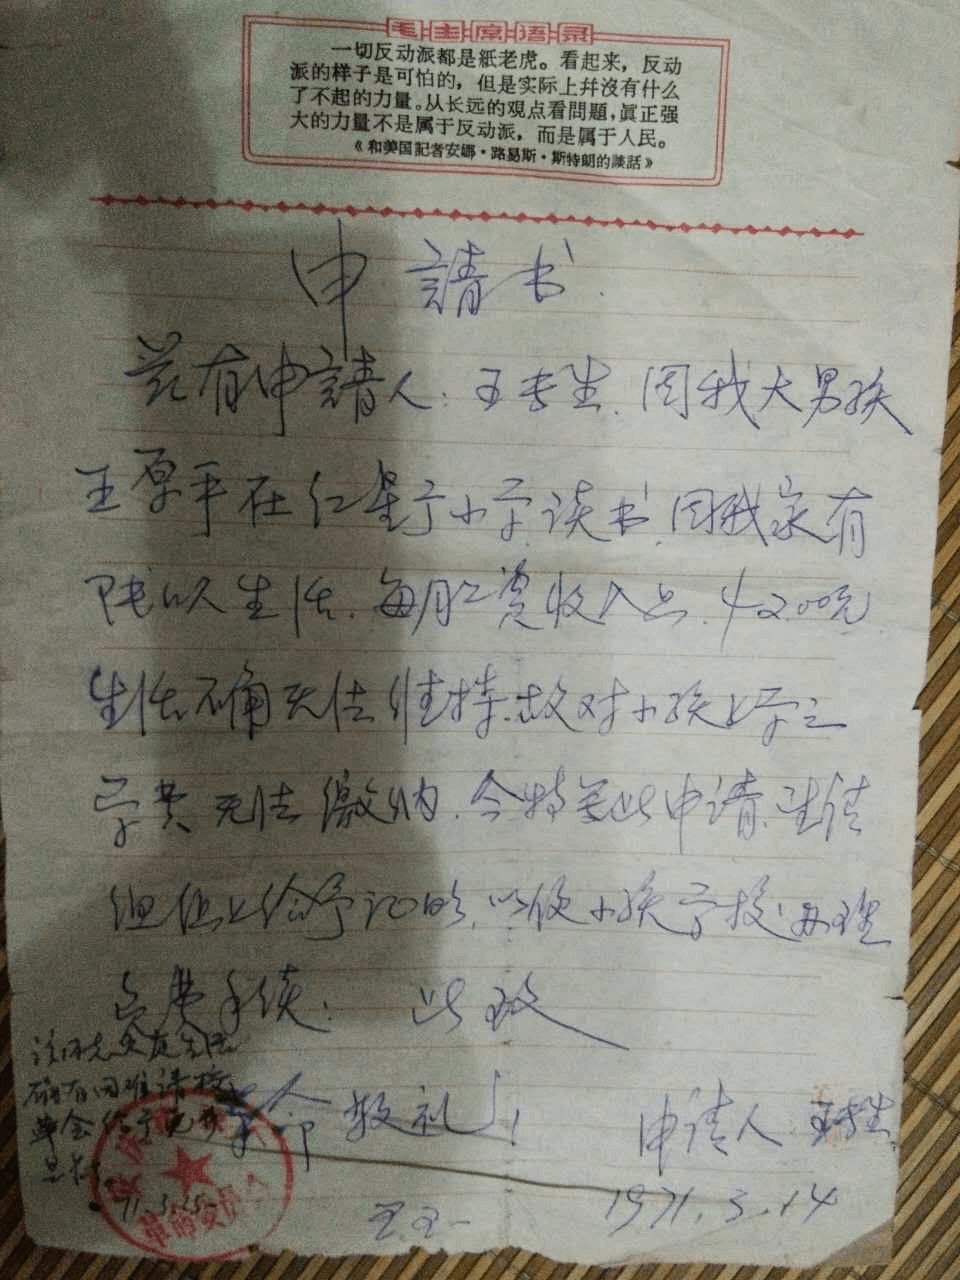 毛主席语录
一切反动派都是紙老虎。看起来，反动
派的样子是可怕的，但是实际上幷沒有什么
了不起的力量。从长远的观点看問題，眞正强
大的力量不是属于反动派，而是属于人民。
《和美国記者安娜·路易斯·斯特朗的談話》
申請书
兹有申請人：王孝生，因我大男孩
王原平在红星小学读书，因我家有
人生活，每月工资收入共，42.00元
生活确无法维持，故对小孩上学之
学费无法缴纳，今特呈此申请，
组织上给予证明，以便小孩学校办理
免费手续：此致
革命敬礼！
申请人
1971.3.14
该同志家庭生活
确有困难请校
革会给予免费
71.3.15
革命委员会